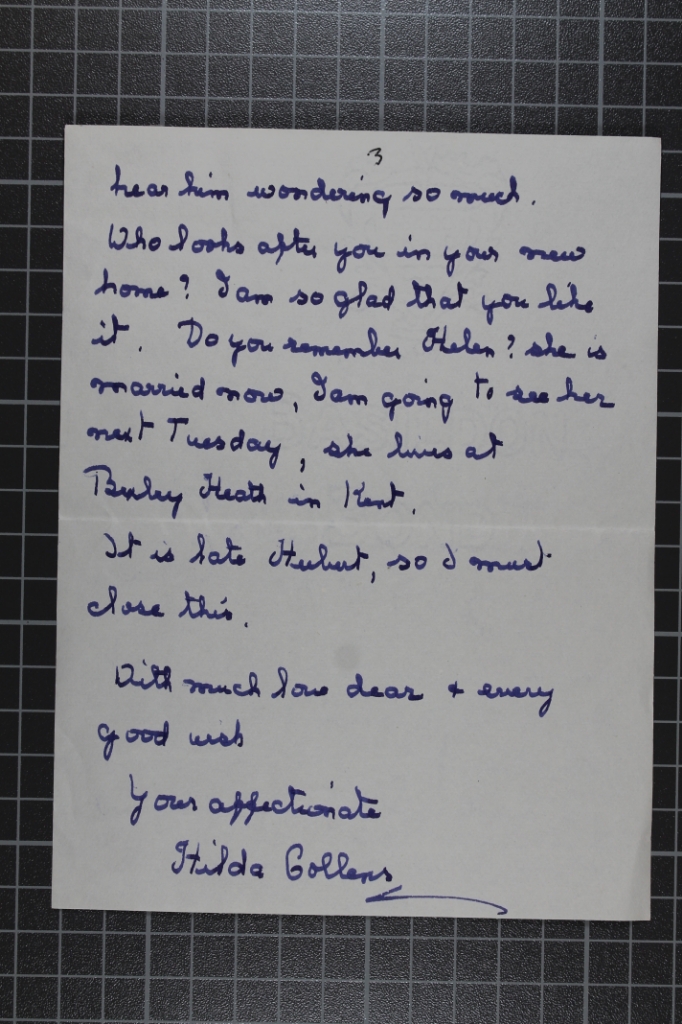 3
hear him wondering so much.
Who looks after you in your new
home? I am so glad that you like
it. Do you remember Helen? she is
married now, I am going to see her
next Tuesday, she lives at
Bexley Heath in Kent.
It is late Hubert, so I must
close this.
With much love dear & every
good wish
Your affectionate
Hilda Collens